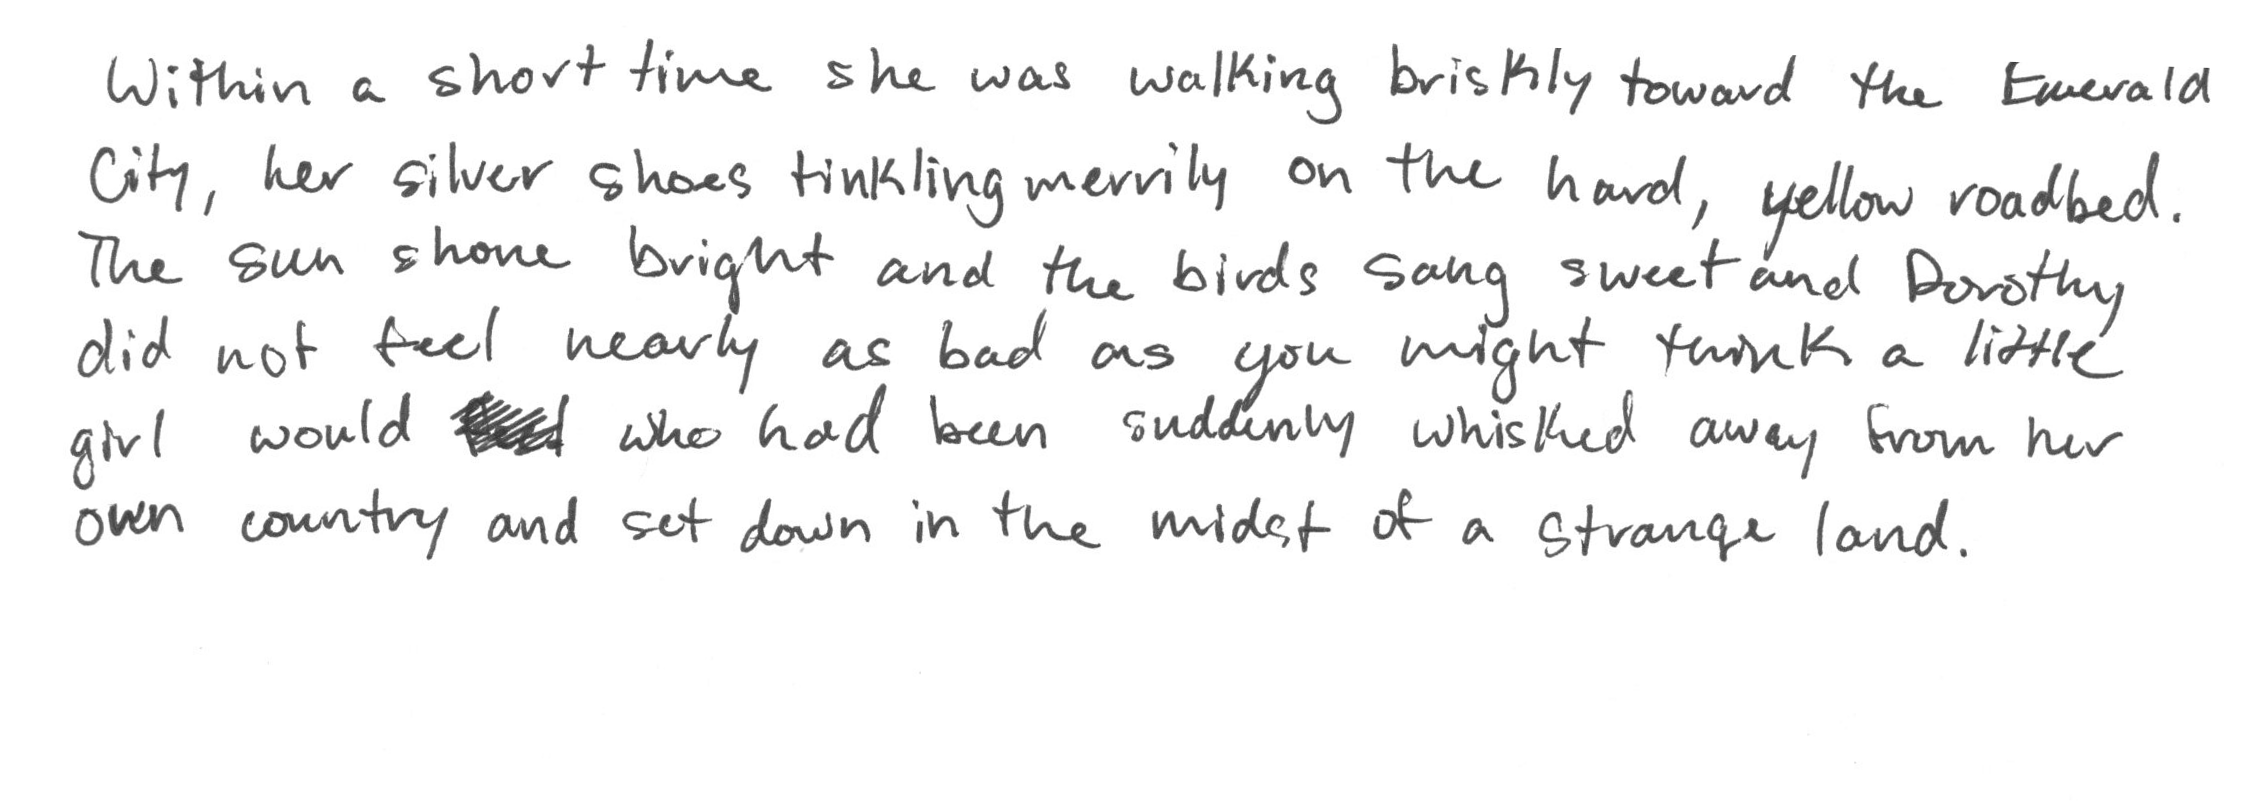 Within a short time she was walking briskly toward the Emerald
City, her silver shoes tinkling merrily on the hard, yellow roadbed.
The sun shone bright and the birds sang sweet and Dorothy
did not feel nearly as bad as you might think a little
girl would who had been suddenly whisked away from her
own country and set down in the midst of a strange land.